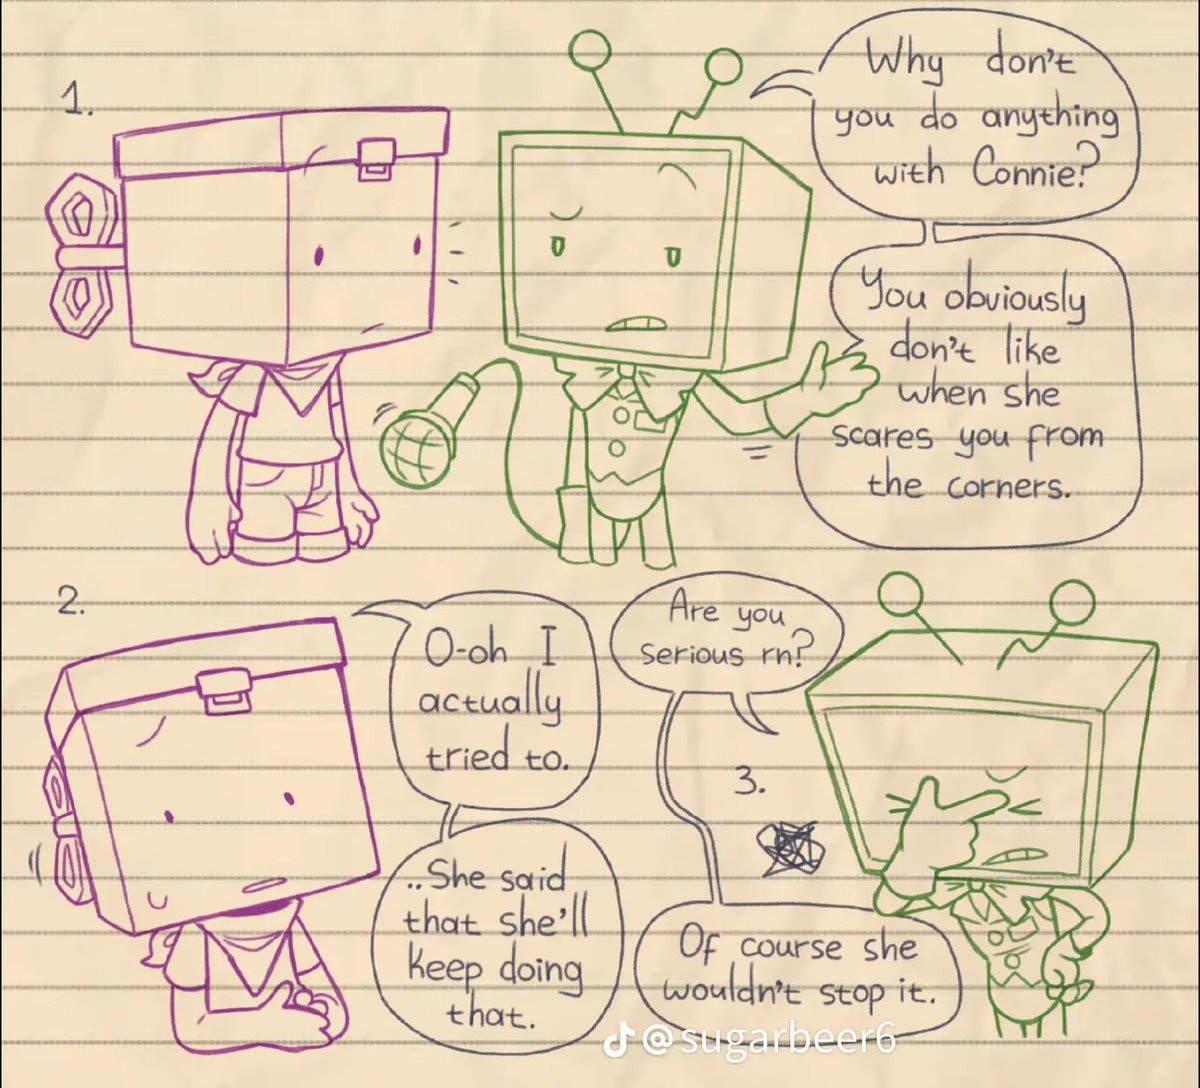 1.
Why don't
you do anything
with Connie?
You obviously
don't like
when she
scares you from
the corners.
2.
O-oh I
actually
tried to.
..She said
that she'll
keep doing
that.
Are you
serious rn?
3.
Of course she
wouldn't stop it.
@sugarbeer6